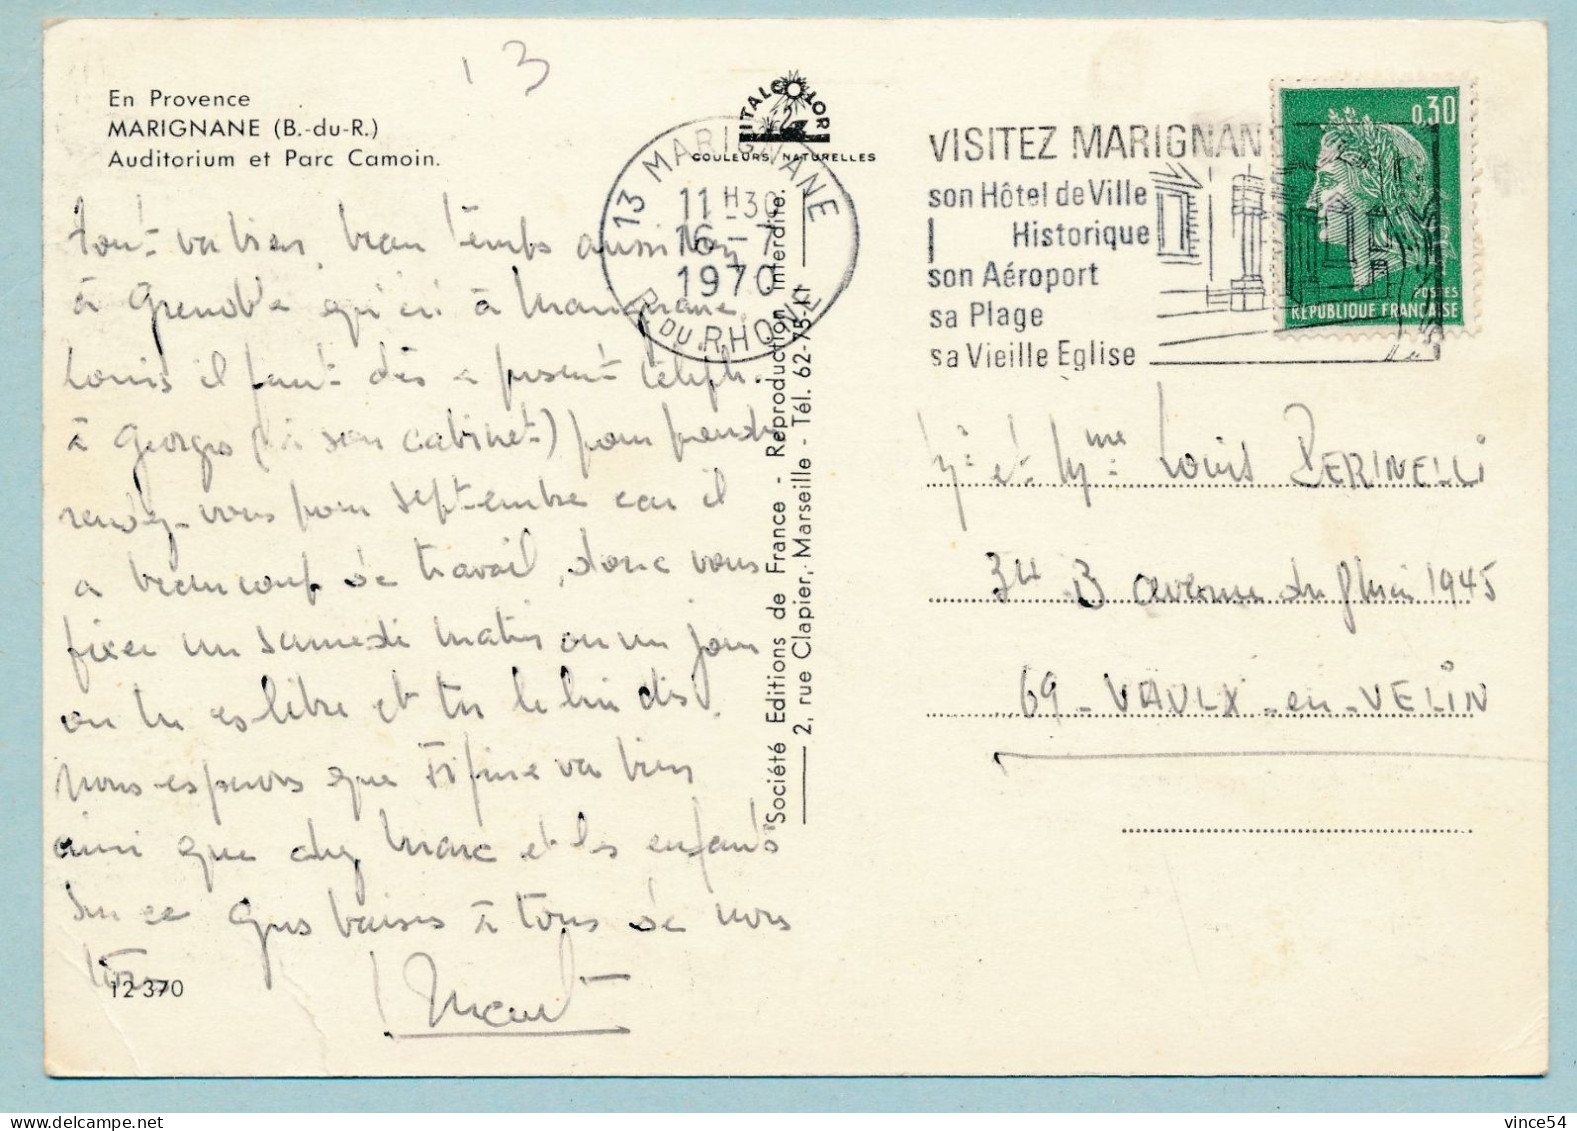 13
En Provence
MARIGNANE (B.-du-R.)
Auditorium et Parc Camoin.
tout va bien, beau temps aussi bien
à Grenoble qu'ici à Marignane.
Louis il faut dès à présent téléph.
à Georges (à son cabinet) pour prendre
rendez-vous pour septembre car il
a beaucoup de travail, donc vous
fixer un samedi matin ou un jour
ou tu es libre et tu le lui dis.
Nous espérons que Fifine va bien
ainsi que chez Marc et les enfants
Sur ce gros baises à tous de nous
tous
12 370
Vincent
ITALCOLOR
COULEURS NATURELLES
13 MARIGNANE
11 H 30
16 - 7
1970
B. DU RHONE
Société Editions de France - Reproduction interdite.
2, rue Clapier, Marseille - Tél. 62-75-17
VISITEZ MARIGNANE
son Hôtel de Ville
Historique
son Aéroport
sa Plage
sa Vieille Eglise
0,30
POSTES
REPUBLIQUE FRANÇAISE
Mr et Mme Louis PERINELLI
34 B avenue du 8 Mai 1945
69 - VAULX - en - VELIN
vince54